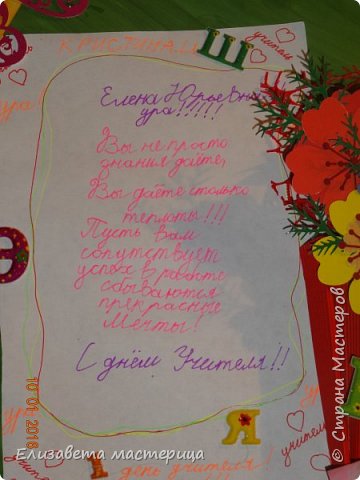 КРИСТИНА
Ш
учитель
ура!
Елена Юрьевна
ура!!!!!
Вы не просто
знания даёте,
Вы даёте столько
теплоты!!!
Пусть вам
сопутствует
успех в работе
сбываются
прекрасные
Мечты!
С днём Учителя!!
Я
учитель
день учителя!
© Страна Мастеров
Елизавета мастерица